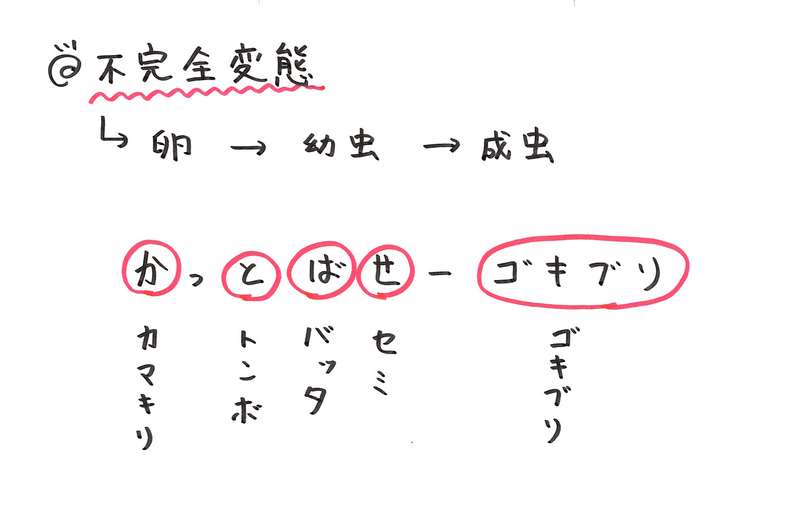 @不完全変態
↳ 卵 → 幼虫 → 成虫
かっとばせー ゴキブリ
カマキリ トンボ バッタ セミ ゴキブリ